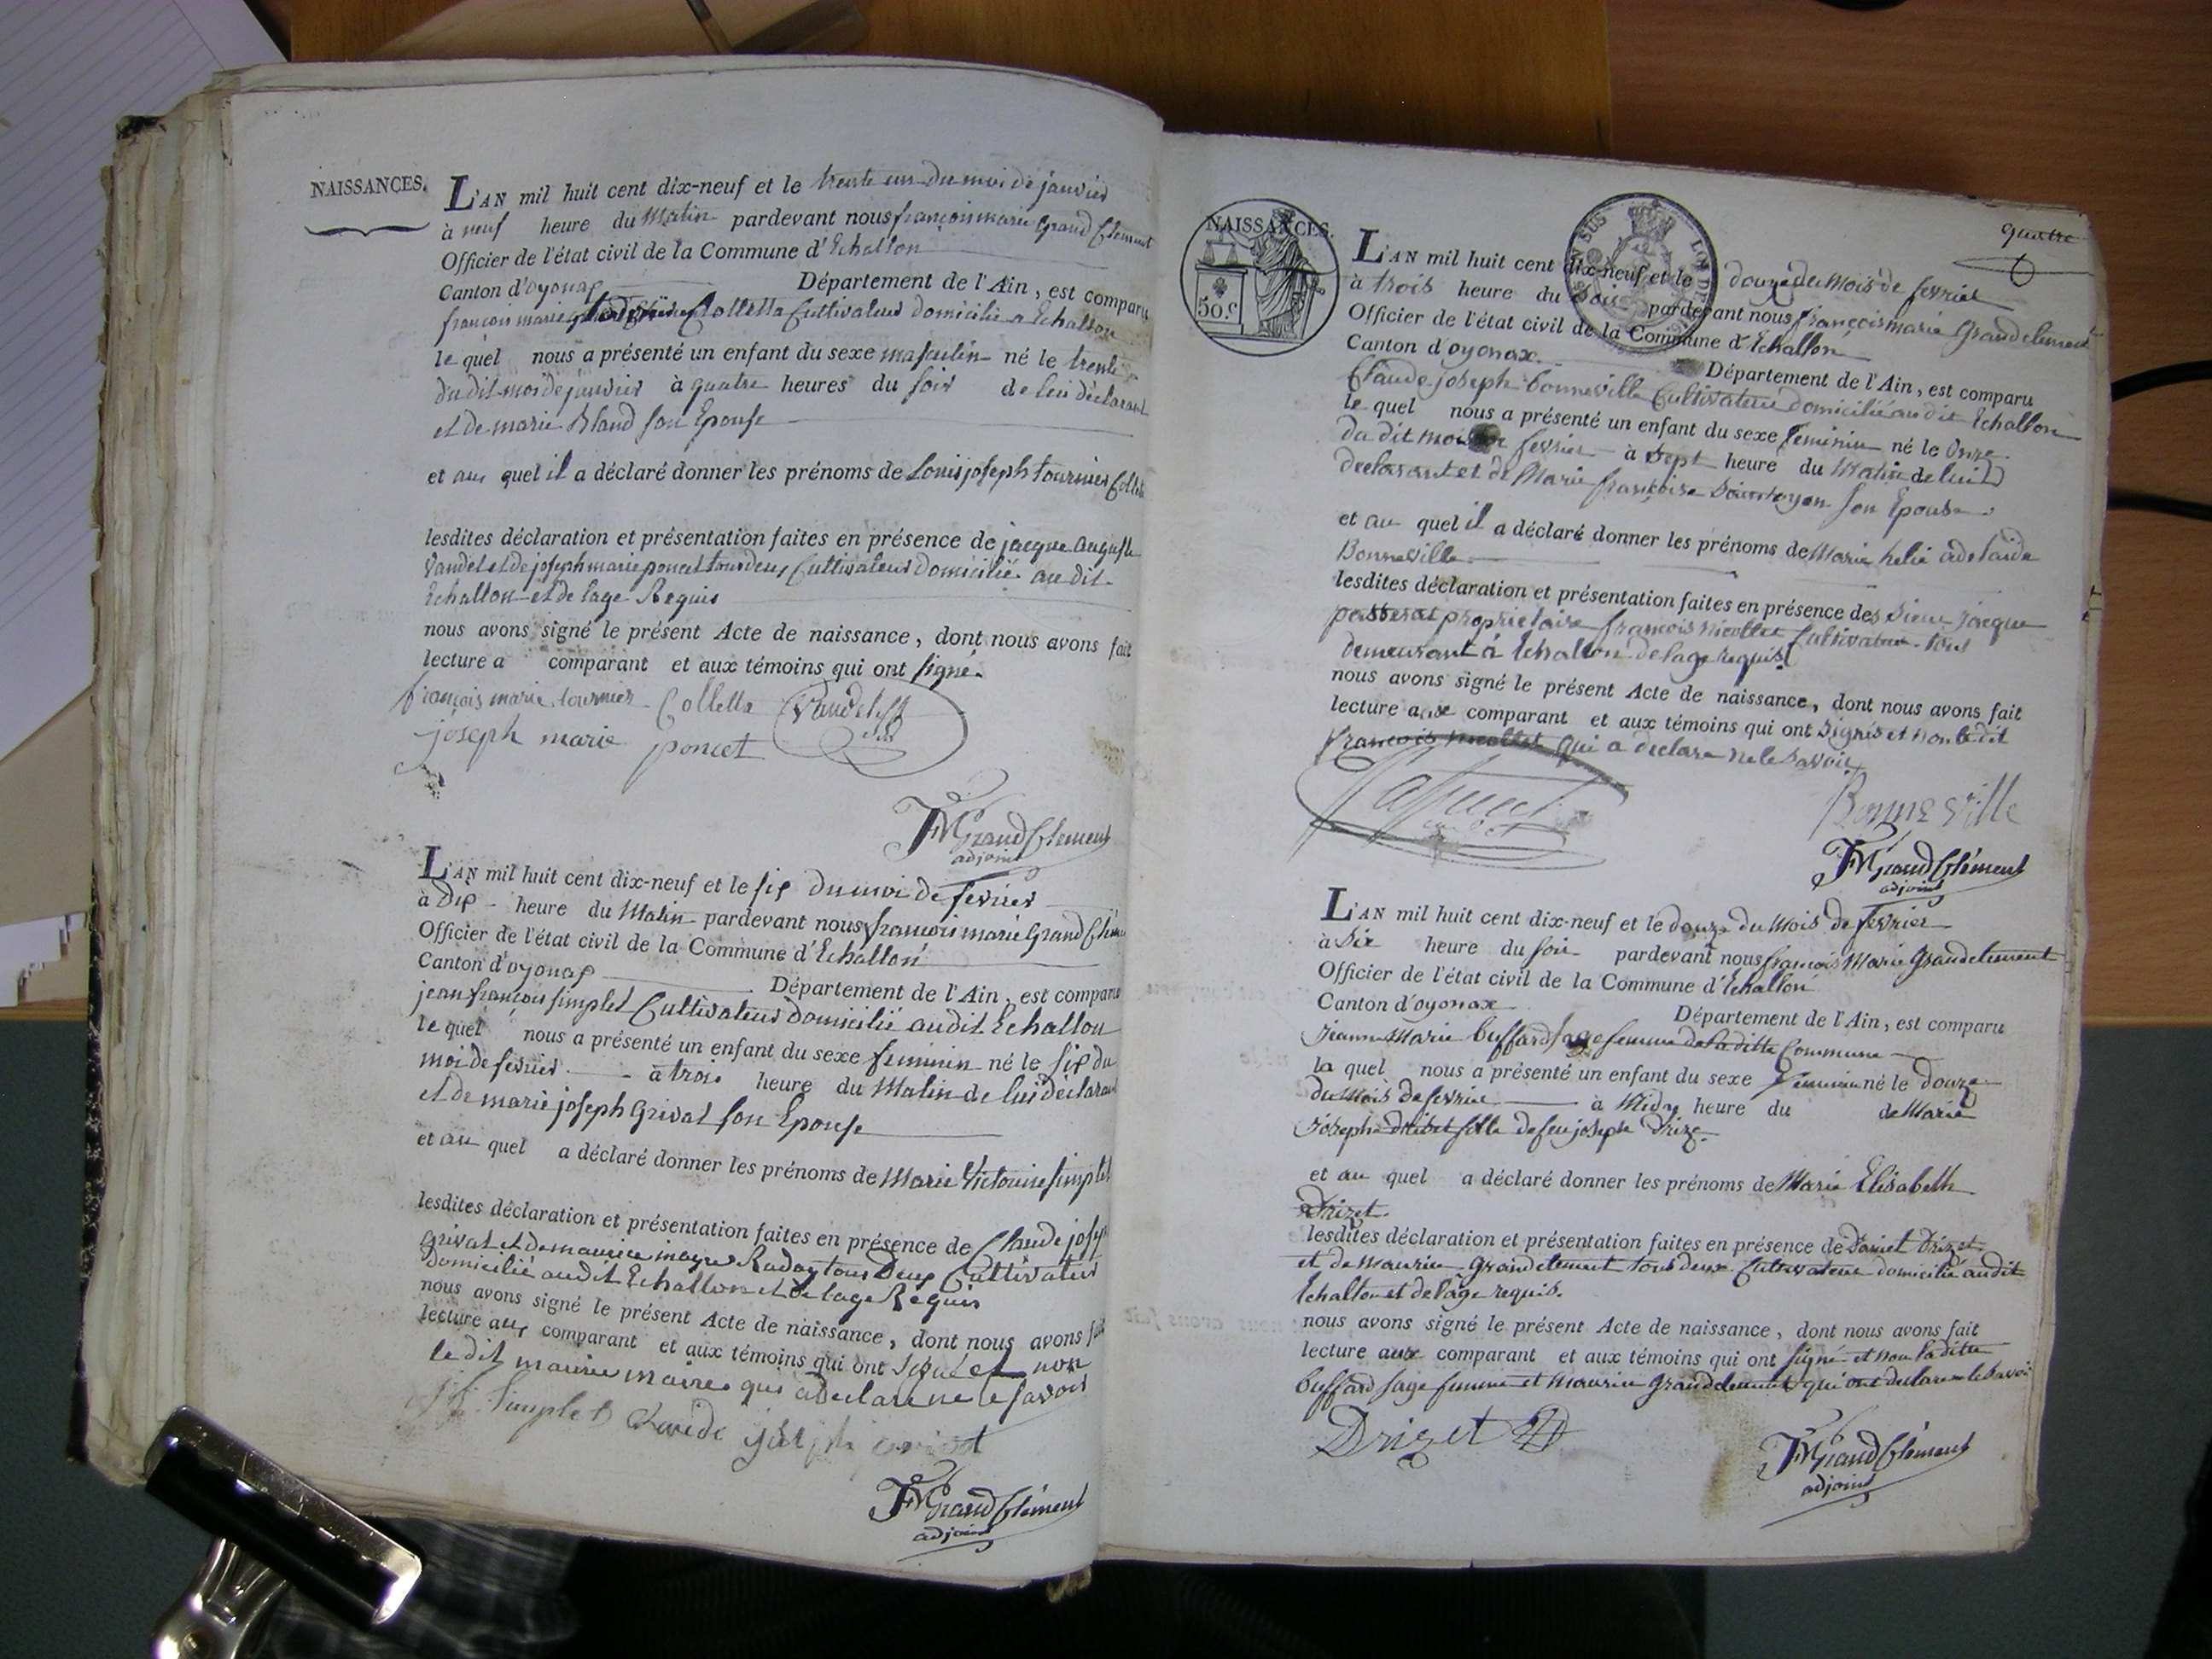 NAISSANCES.
L'AN mil huit cent dix-neuf et le trente un du moi de janvier
à neuf heure du Matin pardevant nous françois marie Grand Clement
Officier de l'état civil de la Commune d'Echallon
Canton d'oyonap Département de l'Ain, est comparu
francois marie Colletta Cultivateur domicilié a Echallon
le quel nous a présenté un enfant du sexe masculin né le trente
du dit moi de janvier à quatre heures du soir de lui déclarant
et de marie Bland son Epouse
et au quel il a déclaré donner les prénoms de Louis joseph tournier
lesdites déclaration et présentation faites en présence de jacque auguste
Vandel et de joseph marie poncet tous deux Cultivateurs Domicilié au dit
Echallon et de l'age Requis
nous avons signé le présent Acte de naissance, dont nous avons fait
lecture a comparant et aux témoins qui ont signé.
françois marie tournier Colletta Vandel
joseph marie poncet
FM Grand Clement
adjoint
L'AN mil huit cent dix-neuf et le six du moi de fevrier
à Dix heure du Matin pardevant nous francois marie Grand
Officier de l'état civil de la Commune d'Echallon
Canton d'oyonap Département de l'Ain, est comparu
jean françois simplet Cultivateur Domicilié au dit Echallon
le quel nous a présenté un enfant du sexe feminin né le six du
moi de fevrier à trois heure du Matin de lui déclarant
et de marie joseph Grivat son Epouse
et au quel a déclaré donner les prénoms de Marie Victoire simplet
lesdites déclaration et présentation faites en présence de Claude josep
Grivat et de maurice tous Deux Cultivateur
domicilié au dit Echallon et de l'age Requis
nous avons signé le présent Acte de naissance, dont nous avons fait
lecture aux comparant et aux témoins qui ont signé et non
le dit maurice maire qui a declaré ne le savoir
simplet Claude joseph grivat
FM Grand Clément
adjoint
quatre
NAISSANCES.
50 c
L'AN mil huit cent dix-neuf et le douze du Mois de fevrier
à trois heure du Soir pardevant nous françois marie Grandclement
Officier de l'état civil de la Commune d'Echallon
Canton d'oyonax Département de l'Ain, est comparu
Claude joseph bonneville Cultivateur domicilié au dit Echallon
le quel nous a présenté un enfant du sexe feminin né le Onze
du dit mois de fevrier à Sept heure du Matin de lui
declarant et de Marie françoise son Epouse
et au quel il a déclaré donner les prénoms de Marie helie adelaide
Bonneville
lesdites déclaration et présentation faites en présence des Sieur jacque
passerat proprietaire françois Nicollet Cultivateur tous
demeurant à Echallon de l'age requis
nous avons signé le présent Acte de naissance, dont nous avons fait
lecture aux comparant et aux témoins qui ont Signés et non le dit
francois Nicollet qui a declare ne le savoir
Bonneville
FM Grand Clément
adjoint
L'AN mil huit cent dix-neuf et le douze du Mois de fevrier
à Six heure du soir pardevant nous françois Marie Grandclement
Officier de l'état civil de la Commune d'Echallon
Canton d'oyonax Département de l'Ain, est comparu
jeanne Marie buffard sage femme de la ditte Commune
la quel nous a présenté un enfant du sexe Feminin né le douze
du Mois de fevrier à Midy heure du de Marie
joseph fille de feu joseph
et au quel a déclaré donner les prénoms de Marie Elisabeth
Drizet.
lesdites déclaration et présentation faites en présence de Daniel Drizet
et de Maurice Grandclement tous deux Cultivateur domicilié au dit
Echallon et de l'age requis.
nous avons signé le présent Acte de naissance, dont nous avons fait
lecture aux comparant et aux témoins qui ont signé et non la ditte
buffard sage femme et Maurice Grandclement qui ont declare ne le savoir
Drizet
FM Grand Clément
adjoint